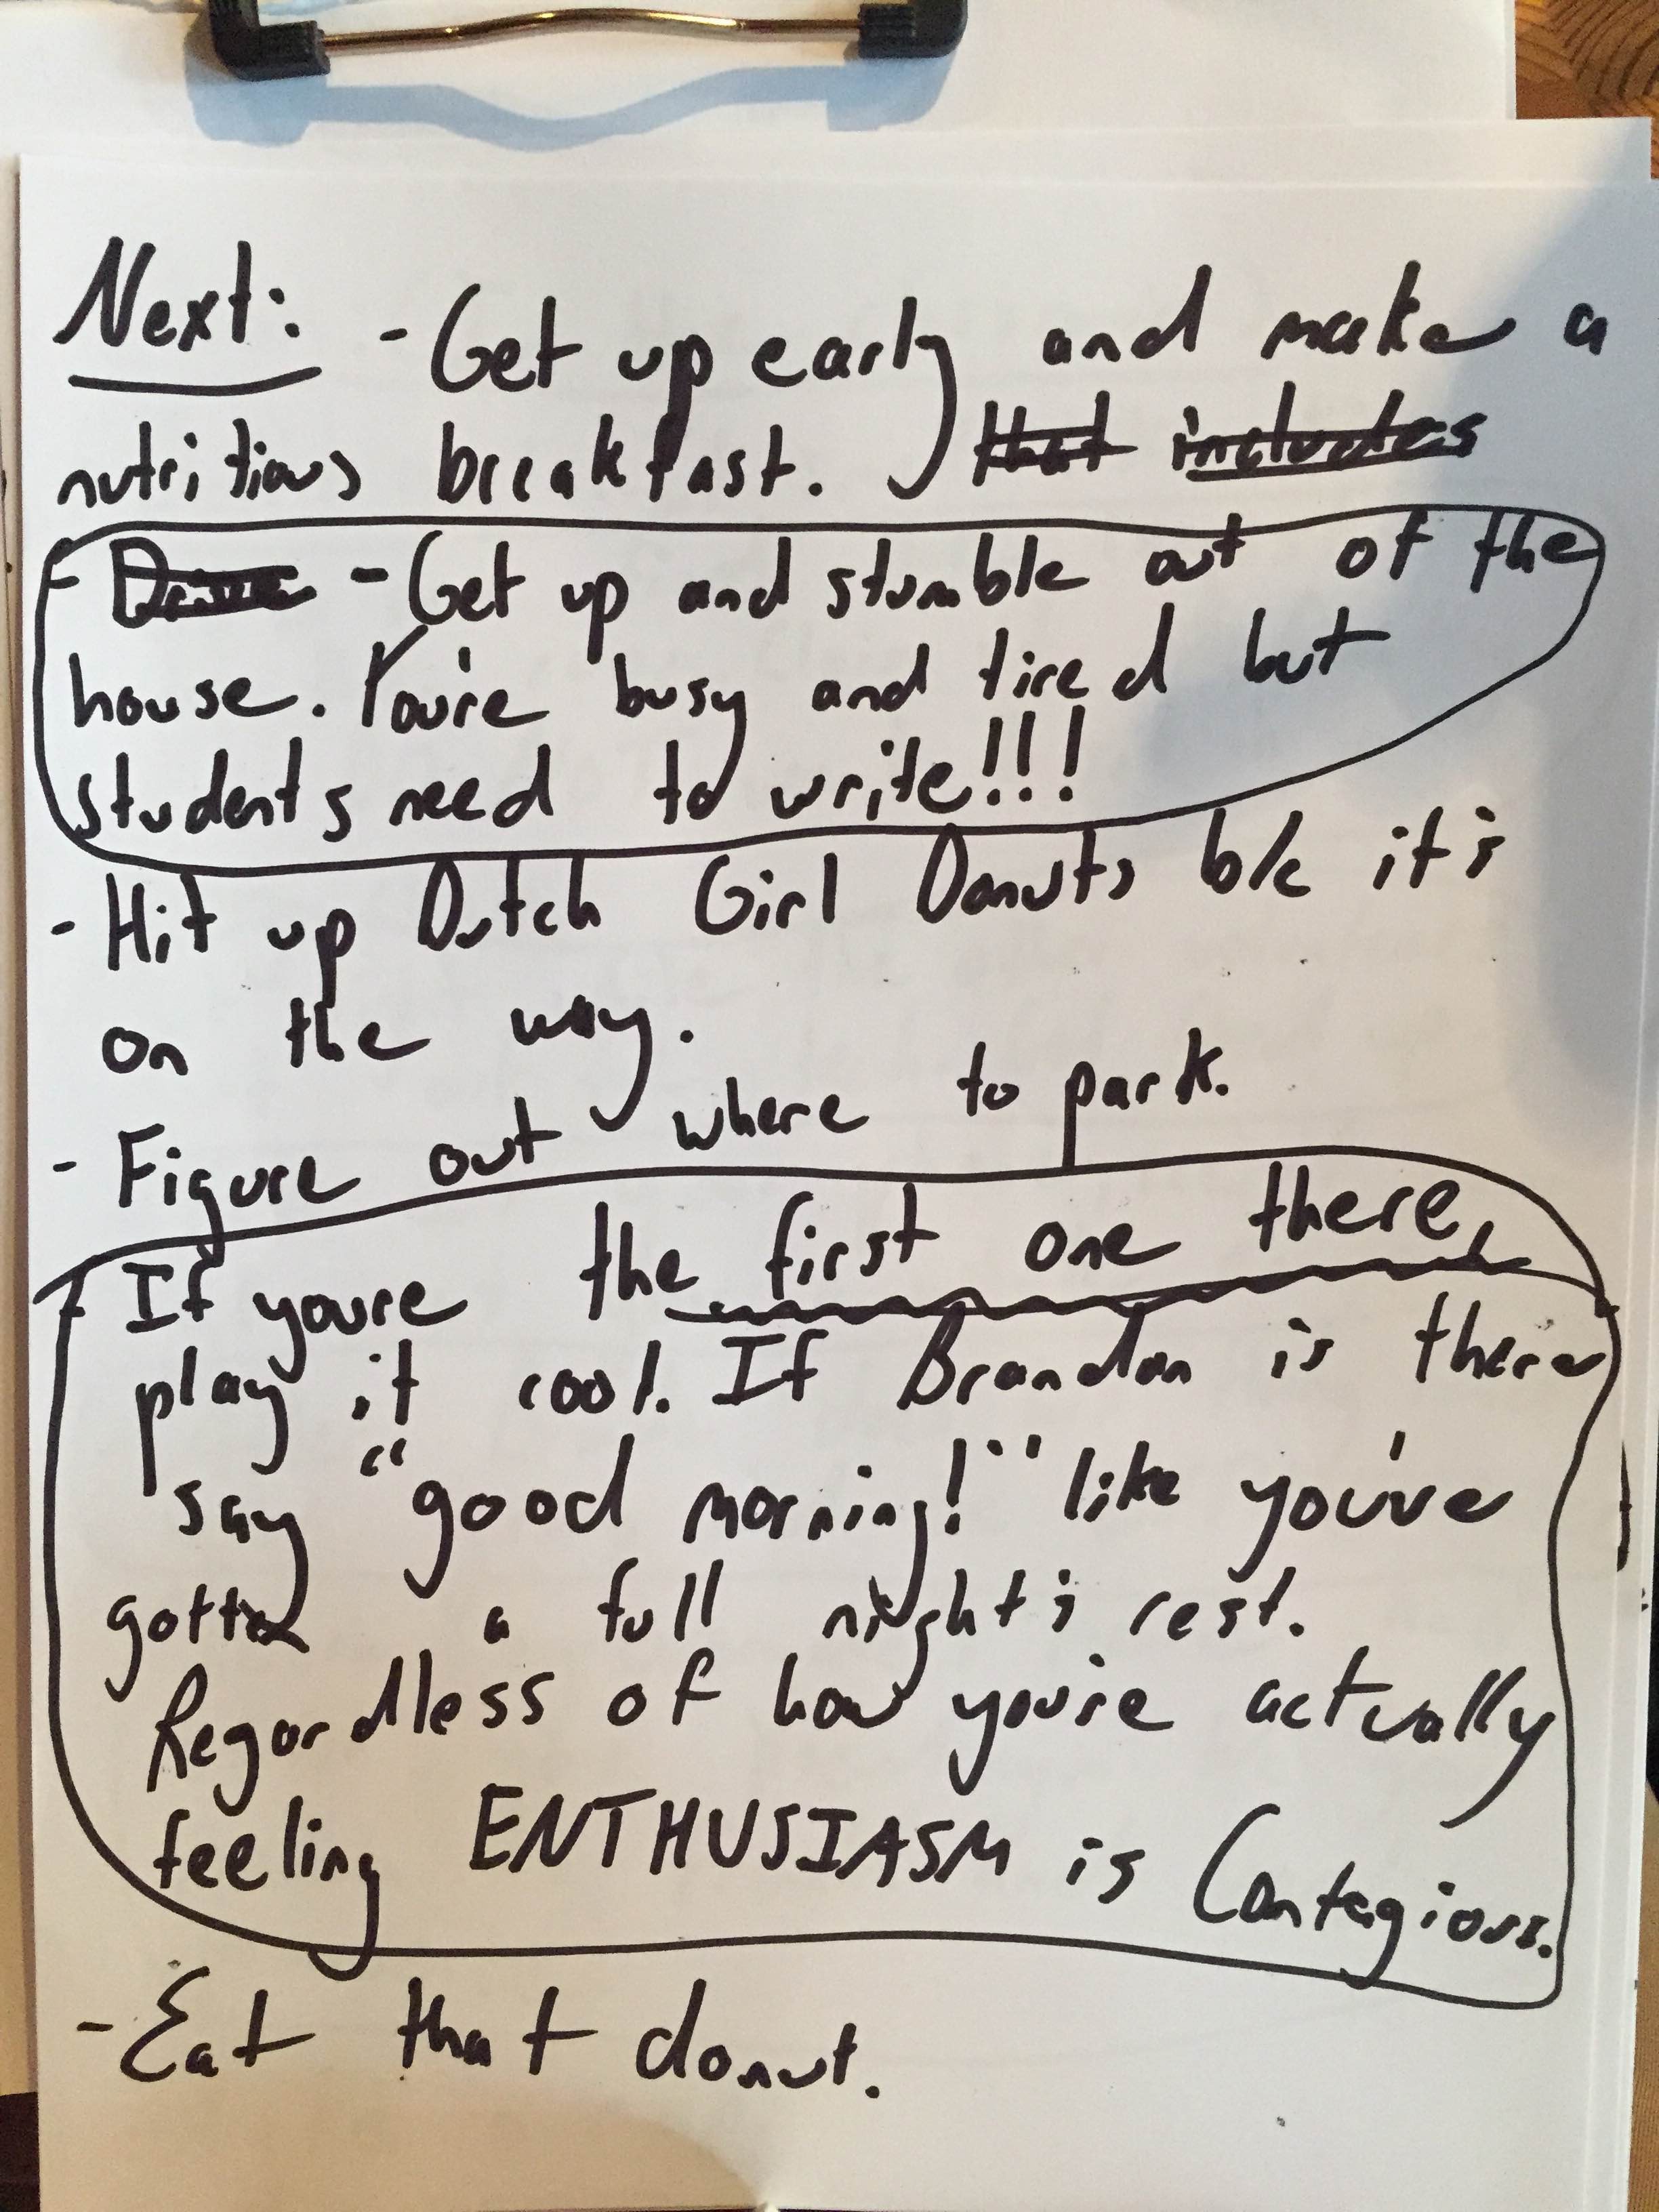 Next: - Get up early and make a
nutritious breakfast. that includes
- Drive - Get up and stumble out of the
house. You're busy and tired but
students need to write!!!
- Hit up Dutch Girl Donuts b/c it's
on the way.
- Figure out where to park.
- If youre the first one there,
play it cool. If Brandon is there
say "good morning!" like you've
gotta a full night's rest.
Regardless of how you're actually
feeling ENTHUSIASM is Contagious.
- Eat that donut.